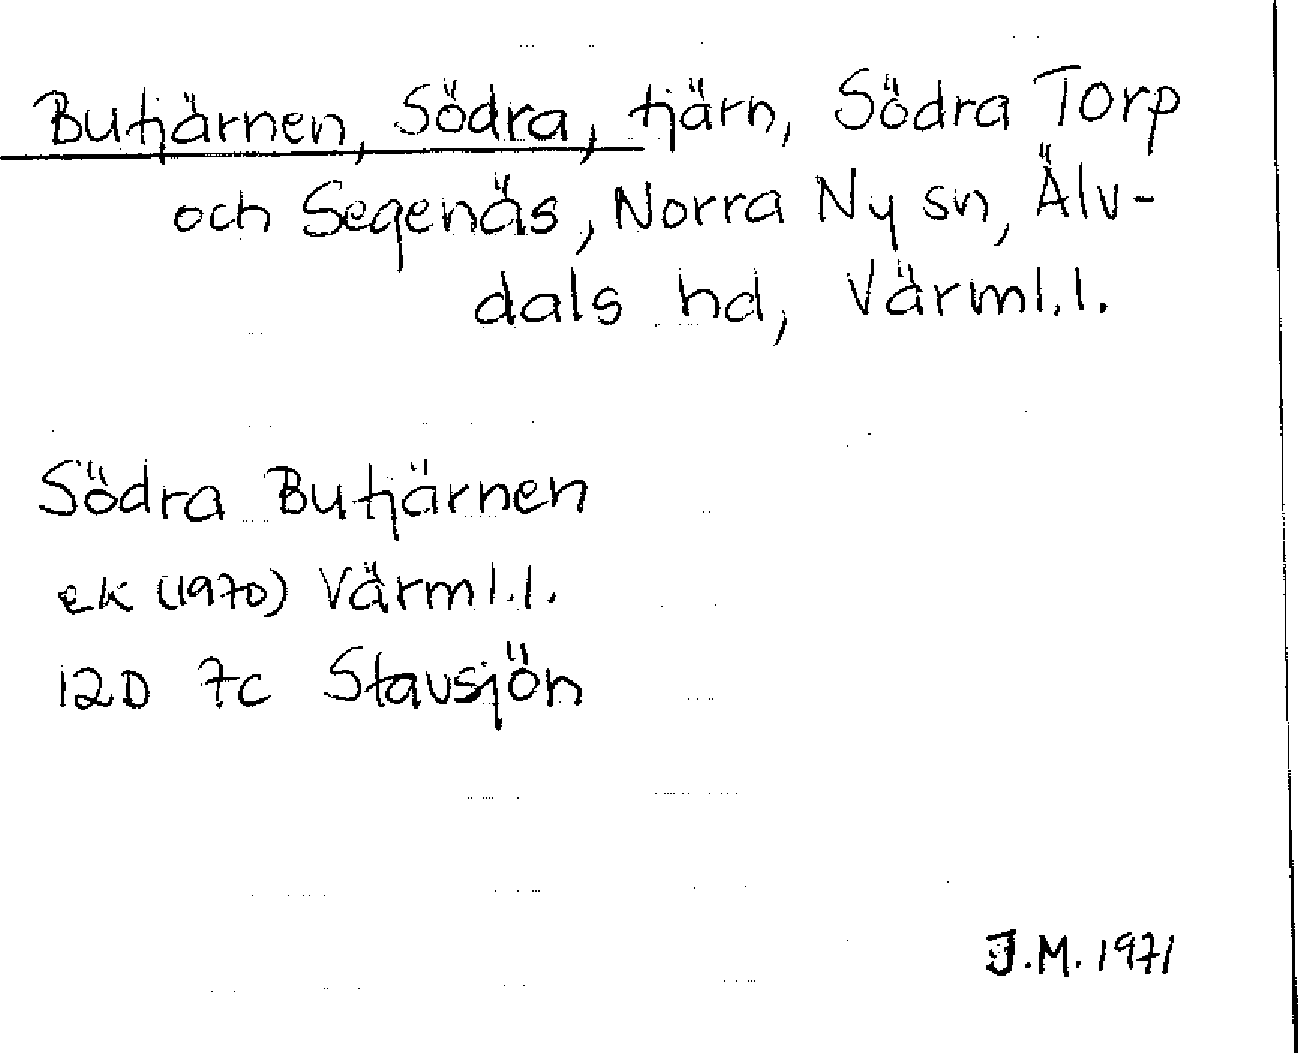 Butjärnen, Södra, tjärn, Södra Torp
och Segenäs, Norra Ny sn, Älv-
dals hd, Värml.l.
Södra Butjärnen
ek (1970) Värml.l.
12D 7c Stavsjön
J.M. 1971